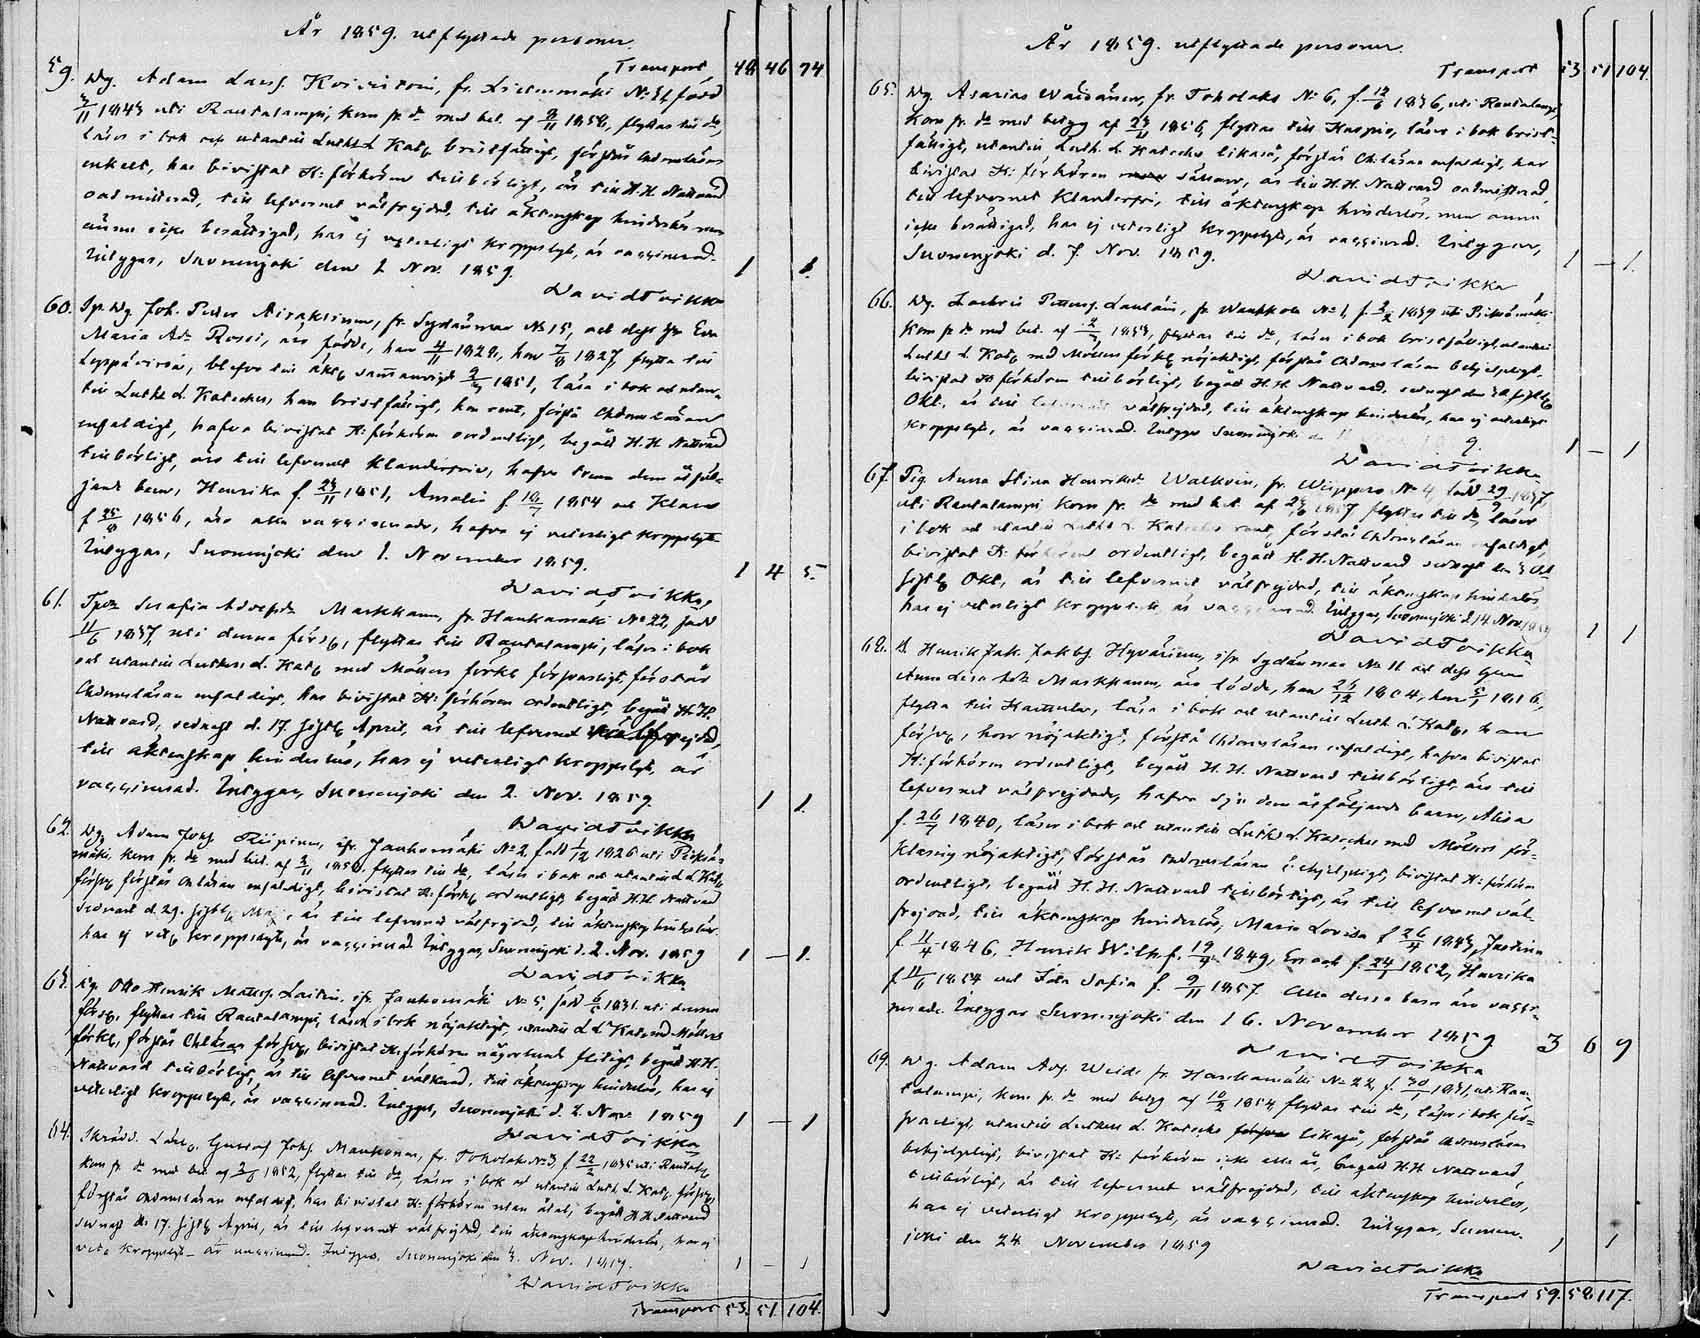 År 1859. utflyttade personer.
Transport 48 46 94
59. Dg. Adam Koivistoinen, fr. No 31, född
1843 uti Rautalampi, kom fr. do med bet. af 1858, flyttar till do,
läser i bok och utantill Luth. L. Kat. bristfälligt, förstår Chdomsläran
enkelt, har bivistat K: förhören tillbörligt, är till H.H. Nattvard
admitterad, till lefvernet välfrejdad, till äktenskap hinderslös men
ännu icke berättigad, har ej veterligt kroppslyte, är vaccinerad.
Intygar, Suonenjoki den 1 Nov. 1859. 1 1.
David Toikka
60. Joh. Petter Airaksinen, fr. Sydänmaa No 15, och dess hu. Eva
Maria Ad. Rossi, äro födde, han 4/11 1828, hon 7/8 1827, flytta till
Leppävirta, blefvo till äkt. sammanvigde 1851, läsa i bok och utan-
till Luth. L. Kateches, han bristfälligt, hon rent, förstå Chdomsläran
enfaldigt, hafva bivistat K: förhören ordentligt, begått H.H. Nattvard
tillbörligt, äro till lefvernet klanderfrie, hafva trenne dem åtföl-
jande barn, Henrika f. 23/11 1851, Amalia f. 1854 och Klas
f. 25/8 1856, äro alla vaccinerade, hafva ej veterligt kroppslyte
Intygar, Suonenjoki den 1. November 1859. 1 4 5.
David Toikka,
61. Serafia Adolfsdr. Markkanen, fr. Hankamäki No 22, född
11/6 1837, uti denna förs., flyttar till Rautalampi, läser i bok
och utantill Lutheri L. Kat. med Möllers förkl. försvarligt, förstår
Chdomsläran enfaldigt, har bivistat K: förhören ordentligt, begått H.H.
Nattvard, sednast d. 17. sistl. April, är till lefvernet välfrejdad,
till äktenskap hinderslös, har ej veterligt kroppslyte, är
vaccinerad. Intygar, Suonenjoki den 2. Nov. 1859. 1 1.
David Toikka
62. Dg. Adam Johs. Riipinen, fr. Jauhomäki No 2, född 1/12 1826 uti Pieksä-
mäki, kom fr. do med bet. af 1850, flyttar till do, läser i bok och utantill L. L. Kat.
försv. förstår Chläran enfaldigt, bivistat K: förh. ordentligt, begått H.H. Nattvard
sednast d. 29. sistl. Maj, är till lefvernet välfrejdad, till äktenskap hinderslös.
har ej vet. kroppslyte, är vaccinerad. Intygar, Suonenjoki d. 2. Nov. 1859 1 — 1.
David Toikka
63. Dg. Otto Henrik Mattss. Laitinen, fr. Jauhomäki No 5, född 1831 uti denna
förs. flyttar till Rautalampi, läser i bok nöjaktigt, utantill L. L. Kat. med Möllers
förkl., förstår Chläran försv., bivistat K: förhören någorlunda flitigt, begått H.H.
Nattvard tillbörligt, är till lefvernet välkänd, till äktenskap hinderslös, har ej
veterligt kroppslyte, är vaccinerad. Intygar, Suonenjoki d. 2. Nov. 1859 1 — 1
David Toikka
64. Gustaf Johs. Manhonen, fr. Toholaks No 3, f. 22/2 1835 uti Rautal.
kom fr. do med bet. af 1852, flyttar till do, läser i bok och utantill Luth. L. Kat. försv.,
förstår Chdomsläran enfaldigt, har bivistat K: förhören utan åtal, begått H.H. Nattvard
sednast d. 17. sistl. April, är till lefvernet välfrejdad, till äktenskap hinderslös, har ej
vet. kroppslyte, är vaccinerad. Intygar, Suonenjoki den Nov. 1859. 1 - 1
David Toikka
Transport 53. 51. 104.
År 1859. utflyttade personer.
Transport 53. 51 104.
65. Dg. Asarias Waidänen, fr. Toholaks No 6, f. 12/6 1836, uti Rautalampi,
kom fr. do med betyg af 1856, flyttar till Kuopio, läser i bok brist-
fälligt, utantill Luth. L. Kateches likaså, förstår Chläran enfaldigt, har
bivistat K: förhören sällan, är till H.H. Nattvard admitterad,
till lefvernet klanderfri, till äktenskap hinderslös, men ännu
icke berättigad, har ej veterligt kroppslyte, är vaccinerad. Intygar,
Suonenjoki d. 7. Nov. 1859. 1 — 1.
David Toikka
66. Dg. Zachris Laulain, fr. Wauhkola No 1, f. 1839 uti Pieksämäki
kom fr. do med bet. af 1853, flyttar till do, läser i bok bristfälligt, utantill
Luth. L. Kat. med Möllers förkl. nöjaktigt, förstår Chdomsläran behjelpligt,
bivistat K: förhören tillbörligt, begått H.H. Nattvard, sednast den sistl.
Okt., är till lefvernet välfrejdad, till äktenskap hinderslös, har ej veterligt
kroppslyte, är vaccinerad. Intygar Suonenjoki 1 — 1
David Toikka
67. Pig. Anna Stina Henriksdr. Walkoin, fr. No 4, född 29 1837,
uti Rautalampi kom fr. do med bet. af 1857 flyttar till do, läser
i bok och utantill Luth. L. Kateches rent, förstår Chdomsläran enfaldigt,
bivistat K: förhören ordentligt, begått H.H. Nattvard sednast den
sistl. Okt, är till lefvernet välfrejdad, till äktenskap hinderslös,
har ej veterligt kroppslyte, är vaccinerad. Intygar, Suonenjoki d. 14 Nov. 1859
1 1
David Toikka
68. Henrik Jak. Jakobs. Hyvärinen, fr. Sydänmaa No 11 och dess hu.
Anna Lisa Markkanen, äro födde, han 1804, hon 1816,
flytta till Hautula, läsa i bok och utantill Luth. L. Kat., han
försv., hon nöjaktigt, förstå Chdomsläran enfaldigt, hafva bivistat
K: förhören ordentligt, begått H.H. Nattvard tillbörligt, äro till
lefvernet välfrejdade, hafva sju dem åtföljande barn, Alisa
f. 26/7 1840, läser i bok och utantill Luth. L. Kateches med Möllers för-
klaring nöjaktigt, förstår Chdomsläran behjelpligt, bivistat K: förhören
ordentligt, begått H.H. Nattvard tillbörligt, är till lefvernet väl-
frejdad, till äktenskap hinderslös, Maria Lovisa f. 26/4 1843, Justina
f. 11/4 1846, Henrik Wilh. f. 19/9 1849, f. 24/1 1852, Henrika
f. 11/6 1854 och Ida Sofia f. 9/11 1857. Alla dessa barn äro vacci-
nerade. Intygar Suonenjoki den 16. November 1859. 3 6 9
David Toikka
69. Dg. Adam Weide fr. Hankamäki No 22, f. 30/1 1831, uti Rau-
talampi, kom fr. do med betyg af 10/2 1854, flyttar till do, läser i bok för-
svarligt, utantill Lutheri L. Kateches likaså, förstår Chdomsläran
behjelpligt, bivistat K: förhören icke alla år, begått H.H. Nattvard
tillbörligt, är till lefvernet välfrejdad, till äktenskap hinderslös,
har ej veterligt kroppslyte, är vaccinerad. Intygar, Suonen-
joki den 24 November 1859 1 1
David Toikka
Transport 59. 58 117.